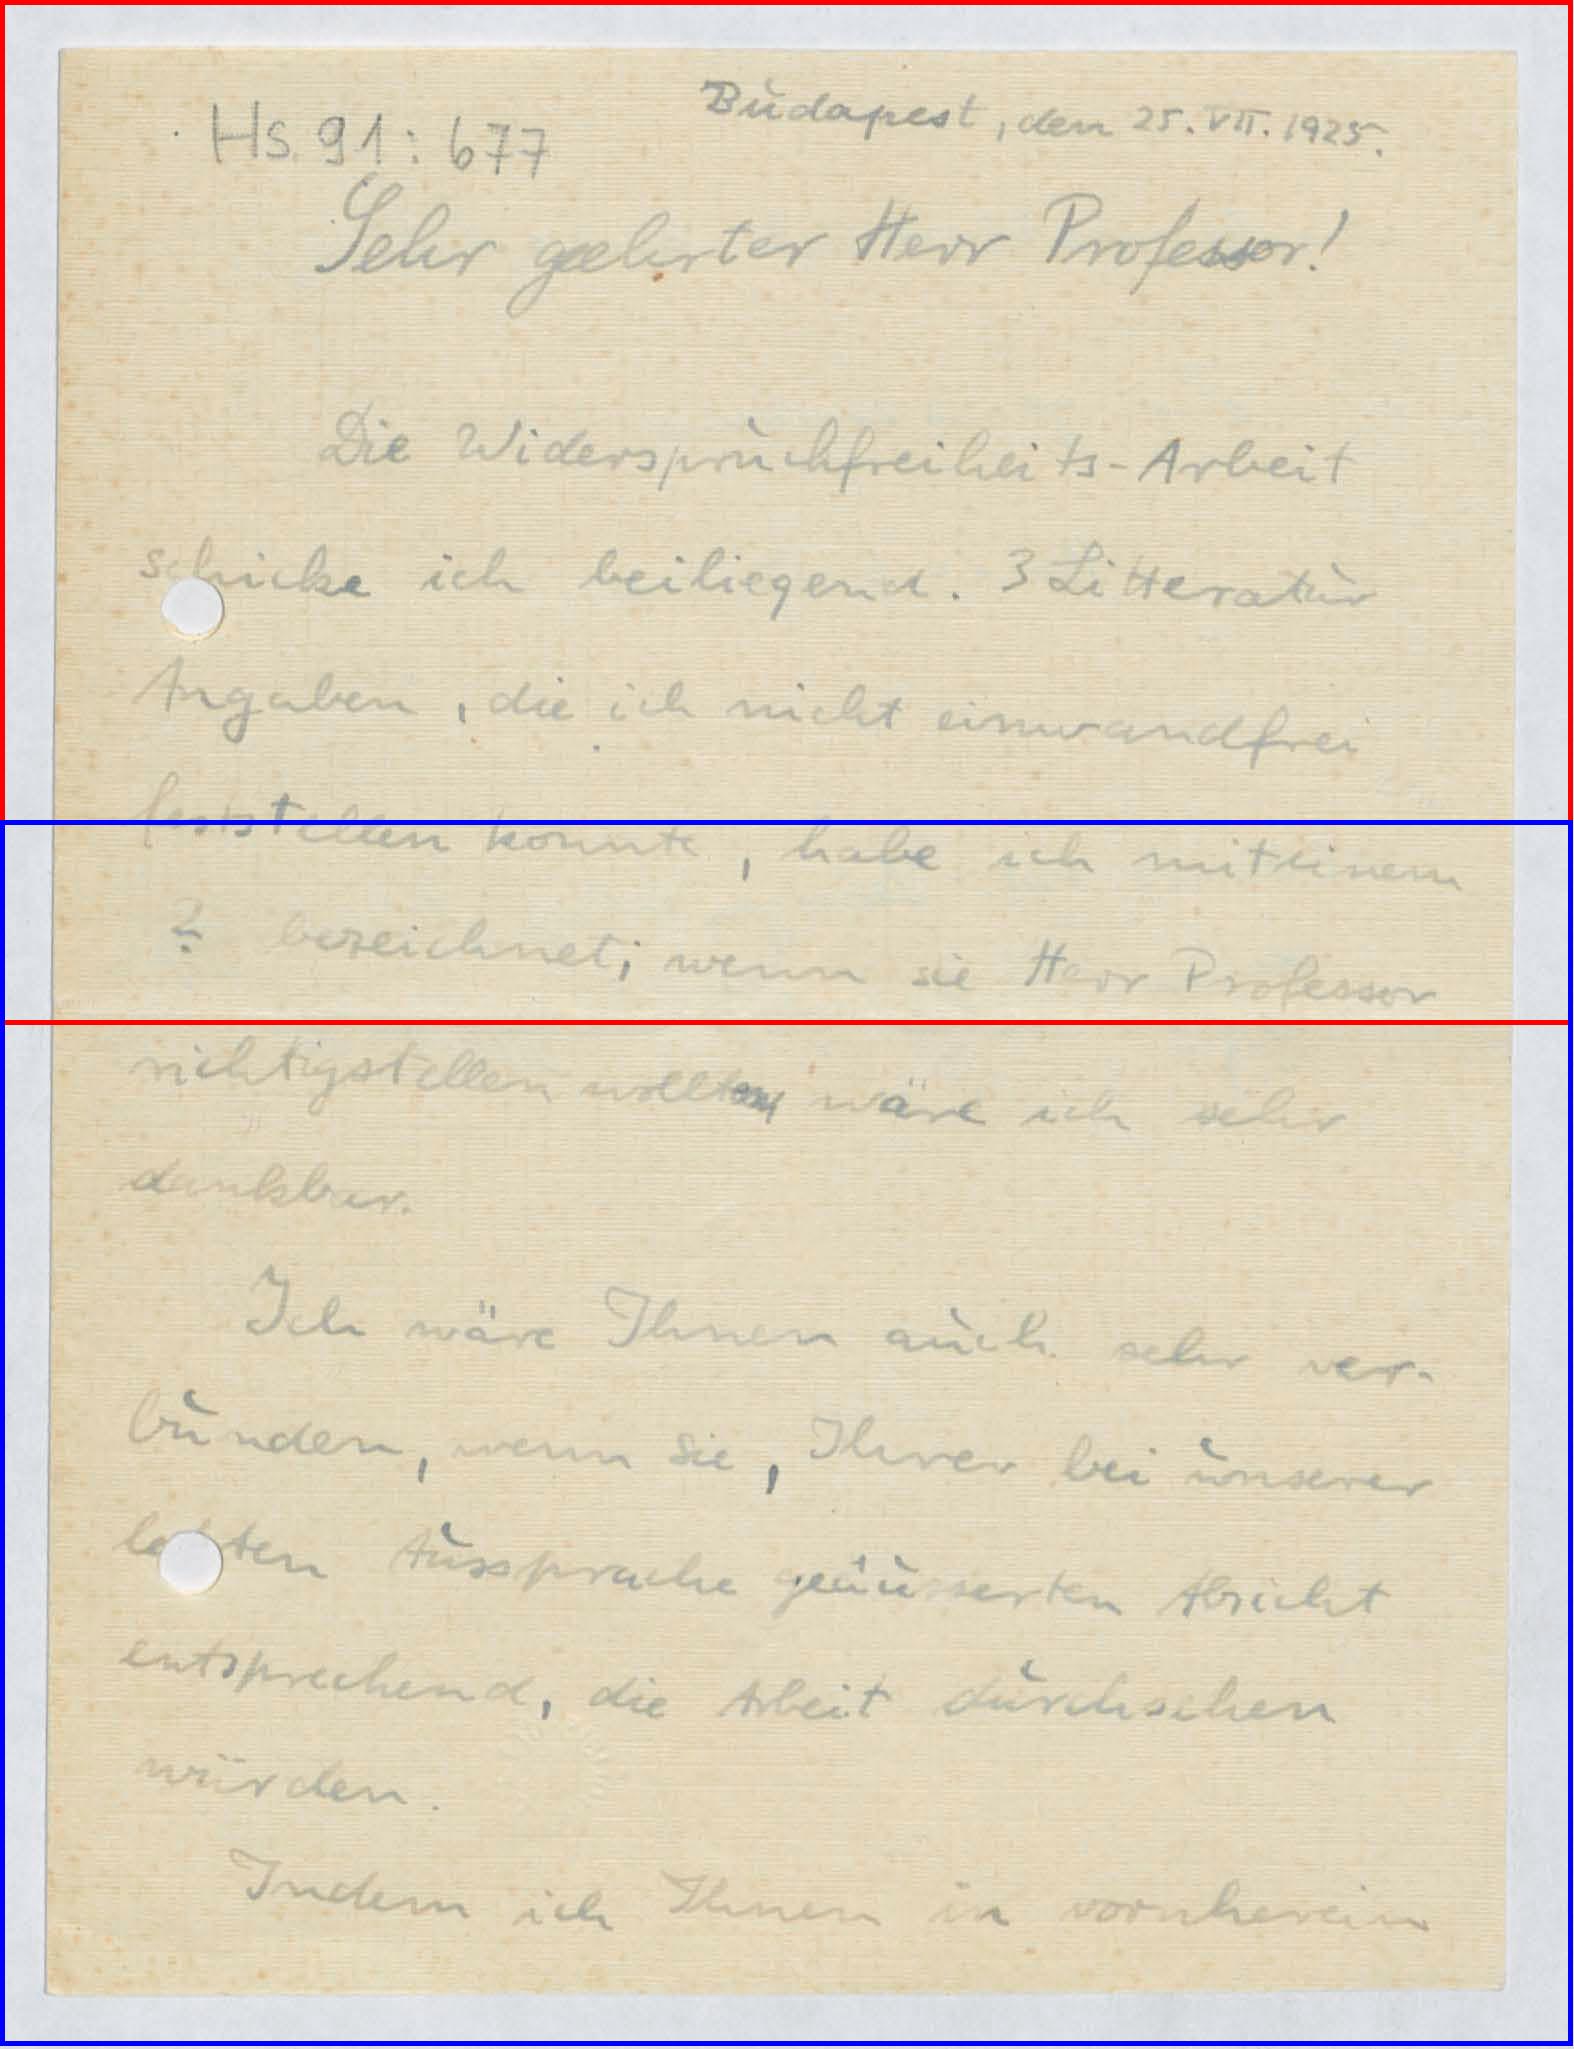 Hs. 91 : 677
Budapest, den 25. VII. 1925.
Sehr geehrter Herr Professor!
Die Widerspruchfreiheits-Arbeit
schicke ich beiliegend. 3 Litteratur
Angaben, die ich nicht einwandfrei
feststellen konnte, habe ich mit einem
? bezeichnet; wenn sie Herr Professor
richtigstellen wollten wäre ich sehr
dankbar.
Ich wäre Ihnen auch sehr ver-
bunden, wenn Sie, Ihrer bei unserer
letzten Aussprache geäusserten Absicht
entsprechend, die Arbeit durchsehen
würden.
Indem ich Ihnen in vornherein